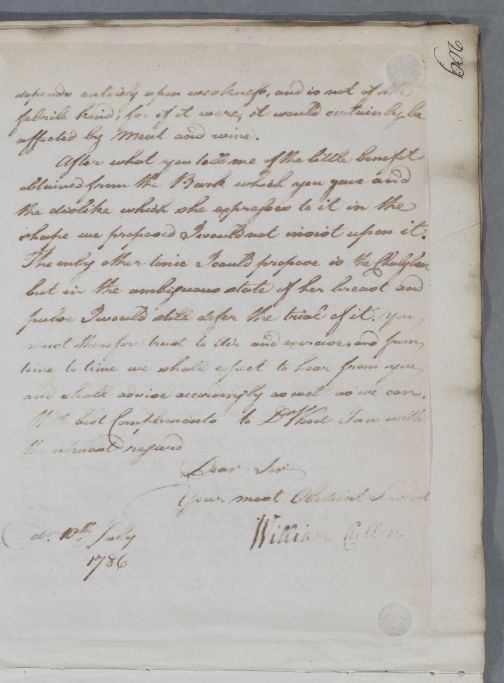 209
depends entirely upon weakness, and is not of the
febrile kind; for if it were, it would certainly be
affected by Meat and wine.
After what you tell me of the little benefit
obtained from the Bark which you gave and
the dislike which she expresses to it in the
shape we proposed I would not insist upon it.
The only other tonic I could propose is the
but in the ambiguous state of her breast and
pulse I would still defer the trial of it. You
must therefore trust to Air and exercise, and from
time to time we shall expect to hear from you
and shall advise accordingly as well as we can.
With best Complements to Dr Hood I am with
the utmost regard
Dear Sir
Your most Obedient Servant
William Cullen
Edr. 10th. July
1786